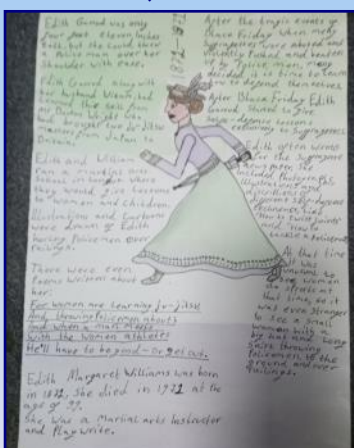 Edith Garrud was only
four foot eleven inches
tall, but she could throw
a Police man over her
shoulder with ease.
Edith Garrud along with
her husband William, had
learned the skill from
who
had brought two Ju-Jitsu
masters from Japan to
Britain.
Edith and William
ran a martial arts
school in London where
they would give lessons
to women and children.
Illustrations and Cartoons
were drawn of Edith
Policemen over
railings.
There were even
poems written about
her:
For women are learning ju-jitsu
And throwing Policemen about
And when a man meets
with the women athletes
He'll have to be good - or get out.
Edith Margaret Williams was born
in 1872, She died in 1971 at the
age of 99.
She was a Martial arts Instructor
and Playwrite.
After the tragic events of
Black Friday when many
Suffragettes were abused and
Pushed and beaten
up by Police men, many
decided it is time to learn
how to defend themselves.
After Black Friday Edith
Garrud started to give
self-defence lessons
exclusively to Suffragettes.
Edith often wrote
for the Suffragette
newspaper, she
included Photographs
illustrations and
descriptions of
different self-defence
techniques, like
"How to twist joints"
and "How to
tackle a Policeman"
At that time
it was
unusual to
see women
do sports at
that time, so it
was even stranger
to see a small
women with a
big hat and long
skirt throwing
Policemen to the
ground and over
railings.